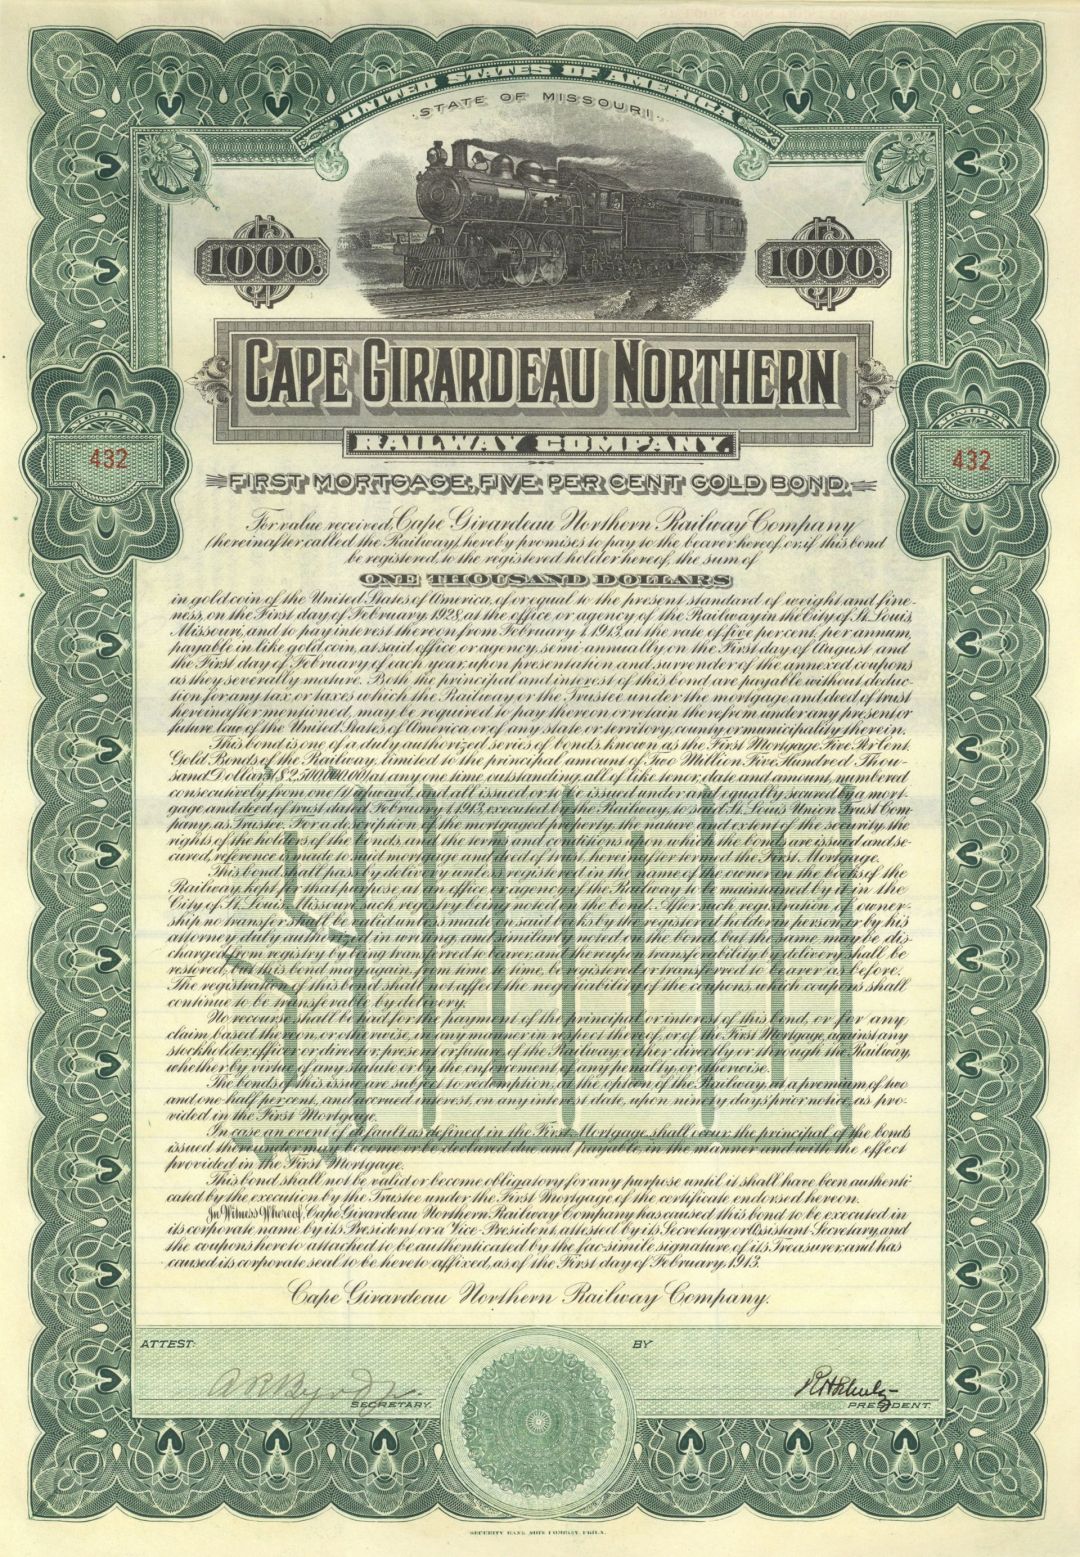 UNITED STATES OF AMERICA
STATE OF MISSOURI.
1000. 1000.
CAPE GIRARDEAU NORTHERN
RAILWAY COMPANY.
NUMBER NUMBER
432 432
FIRST MORTGAGE, FIVE PER CENT GOLD BOND.
For value received, Cape Girardeau Northern Railway Company
(hereinafter called the Railway) hereby promises to pay to the bearer hereof, or, if this bond
be registered, to the registered holder hereof, the sum of
ONE THOUSAND DOLLARS
in gold coin of the United States of America, of or equal to the present standard of weight and fine-
ness, on the First day of February, 1928, at the office or agency of the Railway in the City of St. Louis,
Missouri, and to pay interest thereon from February 1, 1913, at the rate of five per cent, per annum,
payable in like gold coin, at said office or agency, semi-annually on the First day of August and
the First day of February of each year, upon presentation and surrender of the annexed coupons
as they severally mature. Both the principal and interest of this bond are payable without deduc-
tion for any tax or taxes which the Railway or the Trustee under the mortgage and deed of trust
hereinafter mentioned, may be required to pay thereon or retain therefrom under any present or
future law of the United States of America, or of any state or territory, county or municipality therein.
This bond is one of a duly authorized series of bonds, known as the First Mortgage Five Per Cent.
Gold Bonds of the Railway, limited to the principal amount of Two Million Five Hundred Thou-
sand Dollars ($2,500,000.00) at any one time outstanding, all of like tenor, date and amount, numbered
consecutively from one (1) upward, and all issued or to be issued under and equally secured by a mort-
gage and deed of trust dated February 1, 1913, executed by the Railway, to said St. Louis Union Trust Com-
pany, as Trustee. For a description of the mortgaged property, the nature and extent of the security, the
rights of the holders of the bonds, and the terms and conditions upon which the bonds are issued and se-
cured, reference is made to said mortgage and deed of trust, hereinafter termed the First Mortgage.
This bond shall pass by delivery unless registered in the name of the owner in the books of the
Railway, kept for that purpose at an office or agency of the Railway to be maintained by it in the
City of St. Louis, Missouri, such registry being noted on the bond. After such registration of owner-
ship, no transfer shall be valid unless made on said books by the registered holder in person, or by his
attorney, duly authorized in writing, and similarly noted on the bond, but the same may be dis-
charged from registry by being transferred to bearer, and thereupon transferability by delivery shall be
restored, but this bond may again, from time to time, be registered or transferred to bearer as before.
The registration of this bond shall not affect the negotiability of the coupons, which coupons shall
continue to be transferable by delivery.
No recourse shall be had for the payment of the principal or interest of this bond, or for any
claim based thereon, or otherwise, in any manner in respect thereof, or of the First Mortgage, against any
stockholder, officer or director, present or future, of the Railway, either directly or through the Railway,
whether by virtue of any statute or by the enforcement of any penalty, or otherwise.
The bonds of this issue are subject to redemption, at the option of the Railway, at a premium of two
and one-half per cent, and accrued interest, on any interest date, upon ninety days' prior notice, as pro-
vided in the First Mortgage.
In case an event of default as defined in the First Mortgage, shall occur, the principal of the bonds
issued thereunder may become or be declared due and payable, in the manner and with the effect
provided in the First Mortgage.
This bond shall not be valid or become obligatory for any purpose until it shall have been authenti-
cated by the execution by the Trustee under the First Mortgage, of the certificate endorsed hereon.
In Witness Whereof, Cape Girardeau Northern Railway Company has caused this bond to be executed in
its corporate name by its President or a Vice-President, attested by its Secretary or Assistant Secretary, and
the coupons hereto attached to be authenticated by the fac-simile signature of its Treasurer, and has
caused its corporate seal to be hereto affixed, as of the First day of February, 1913.
Cape Girardeau Northern Railway Company.
ATTEST: BY
SECRETARY. PRESIDENT.
SECURITY BANK NOTE COMPANY, PHILA.